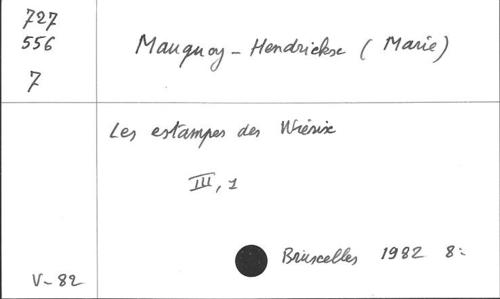 727
556
7
Mauquoy-Hendrickx (Marie)
Les estampes des Wiérix
III, 1
Bruxelles 1982 8:
V-82